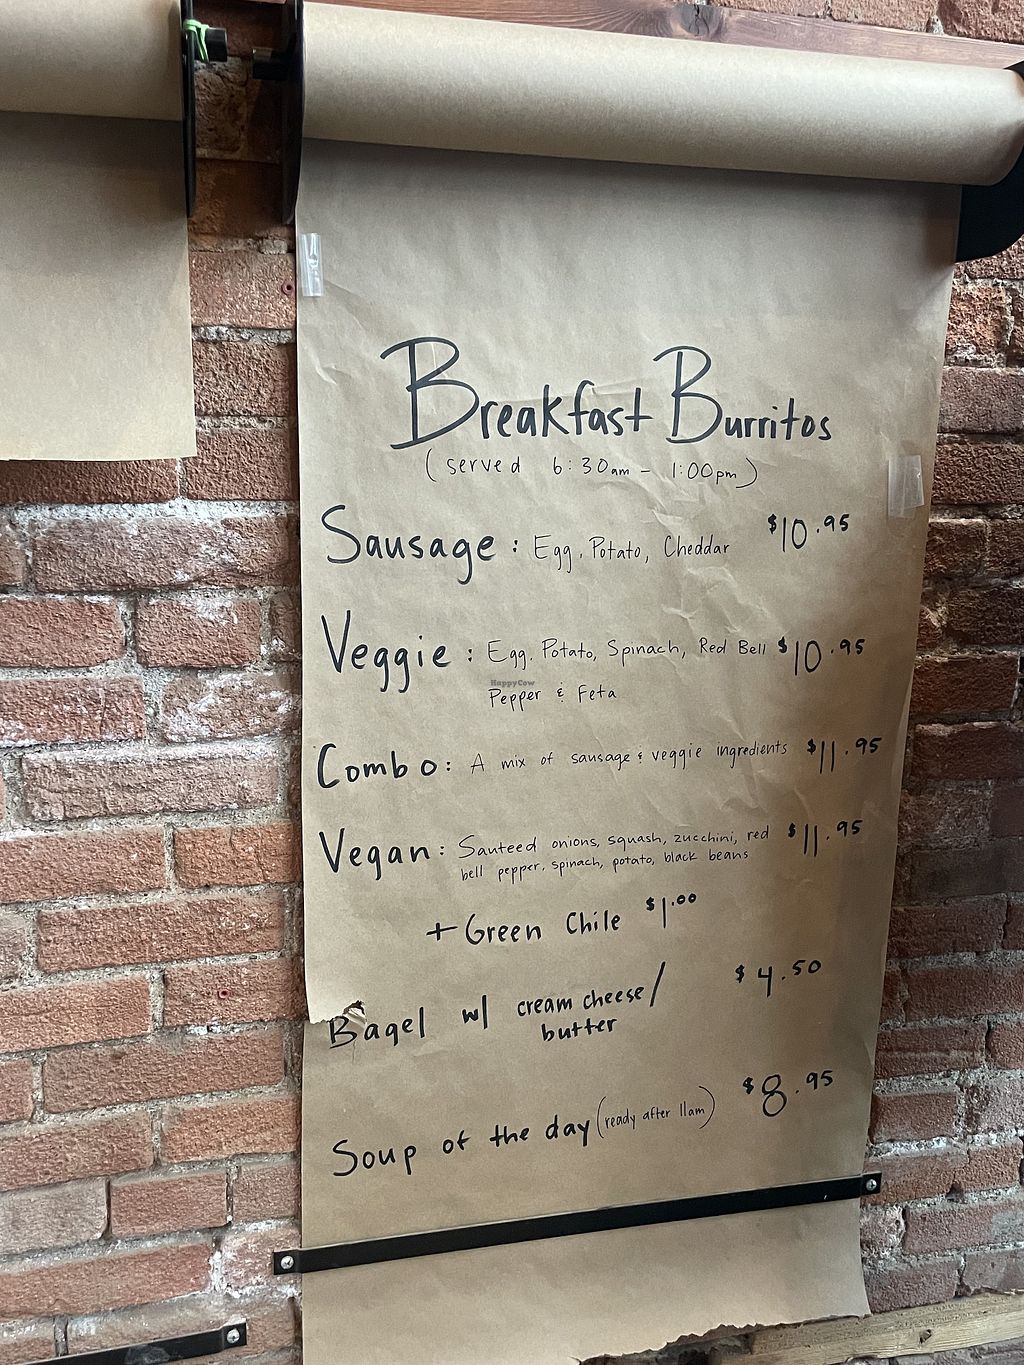 Breakfast Burritos
(served 6:30am - 1:00pm)
Sausage: Egg, Potato, Cheddar $10.95
Veggie: Egg, Potato, Spinach, Red Bell $10.95
HappyCow
Pepper & Feta
Combo: A mix of sausage & veggie ingredients $11.95
Vegan: Sauteed onions, squash, zucchini, red $11.95
bell pepper, spinach, potato, black beans
+ Green Chile $1.00
Bagel w/ cream cheese/ $4.50
butter
Soup of the day (ready after 11am) $8.95